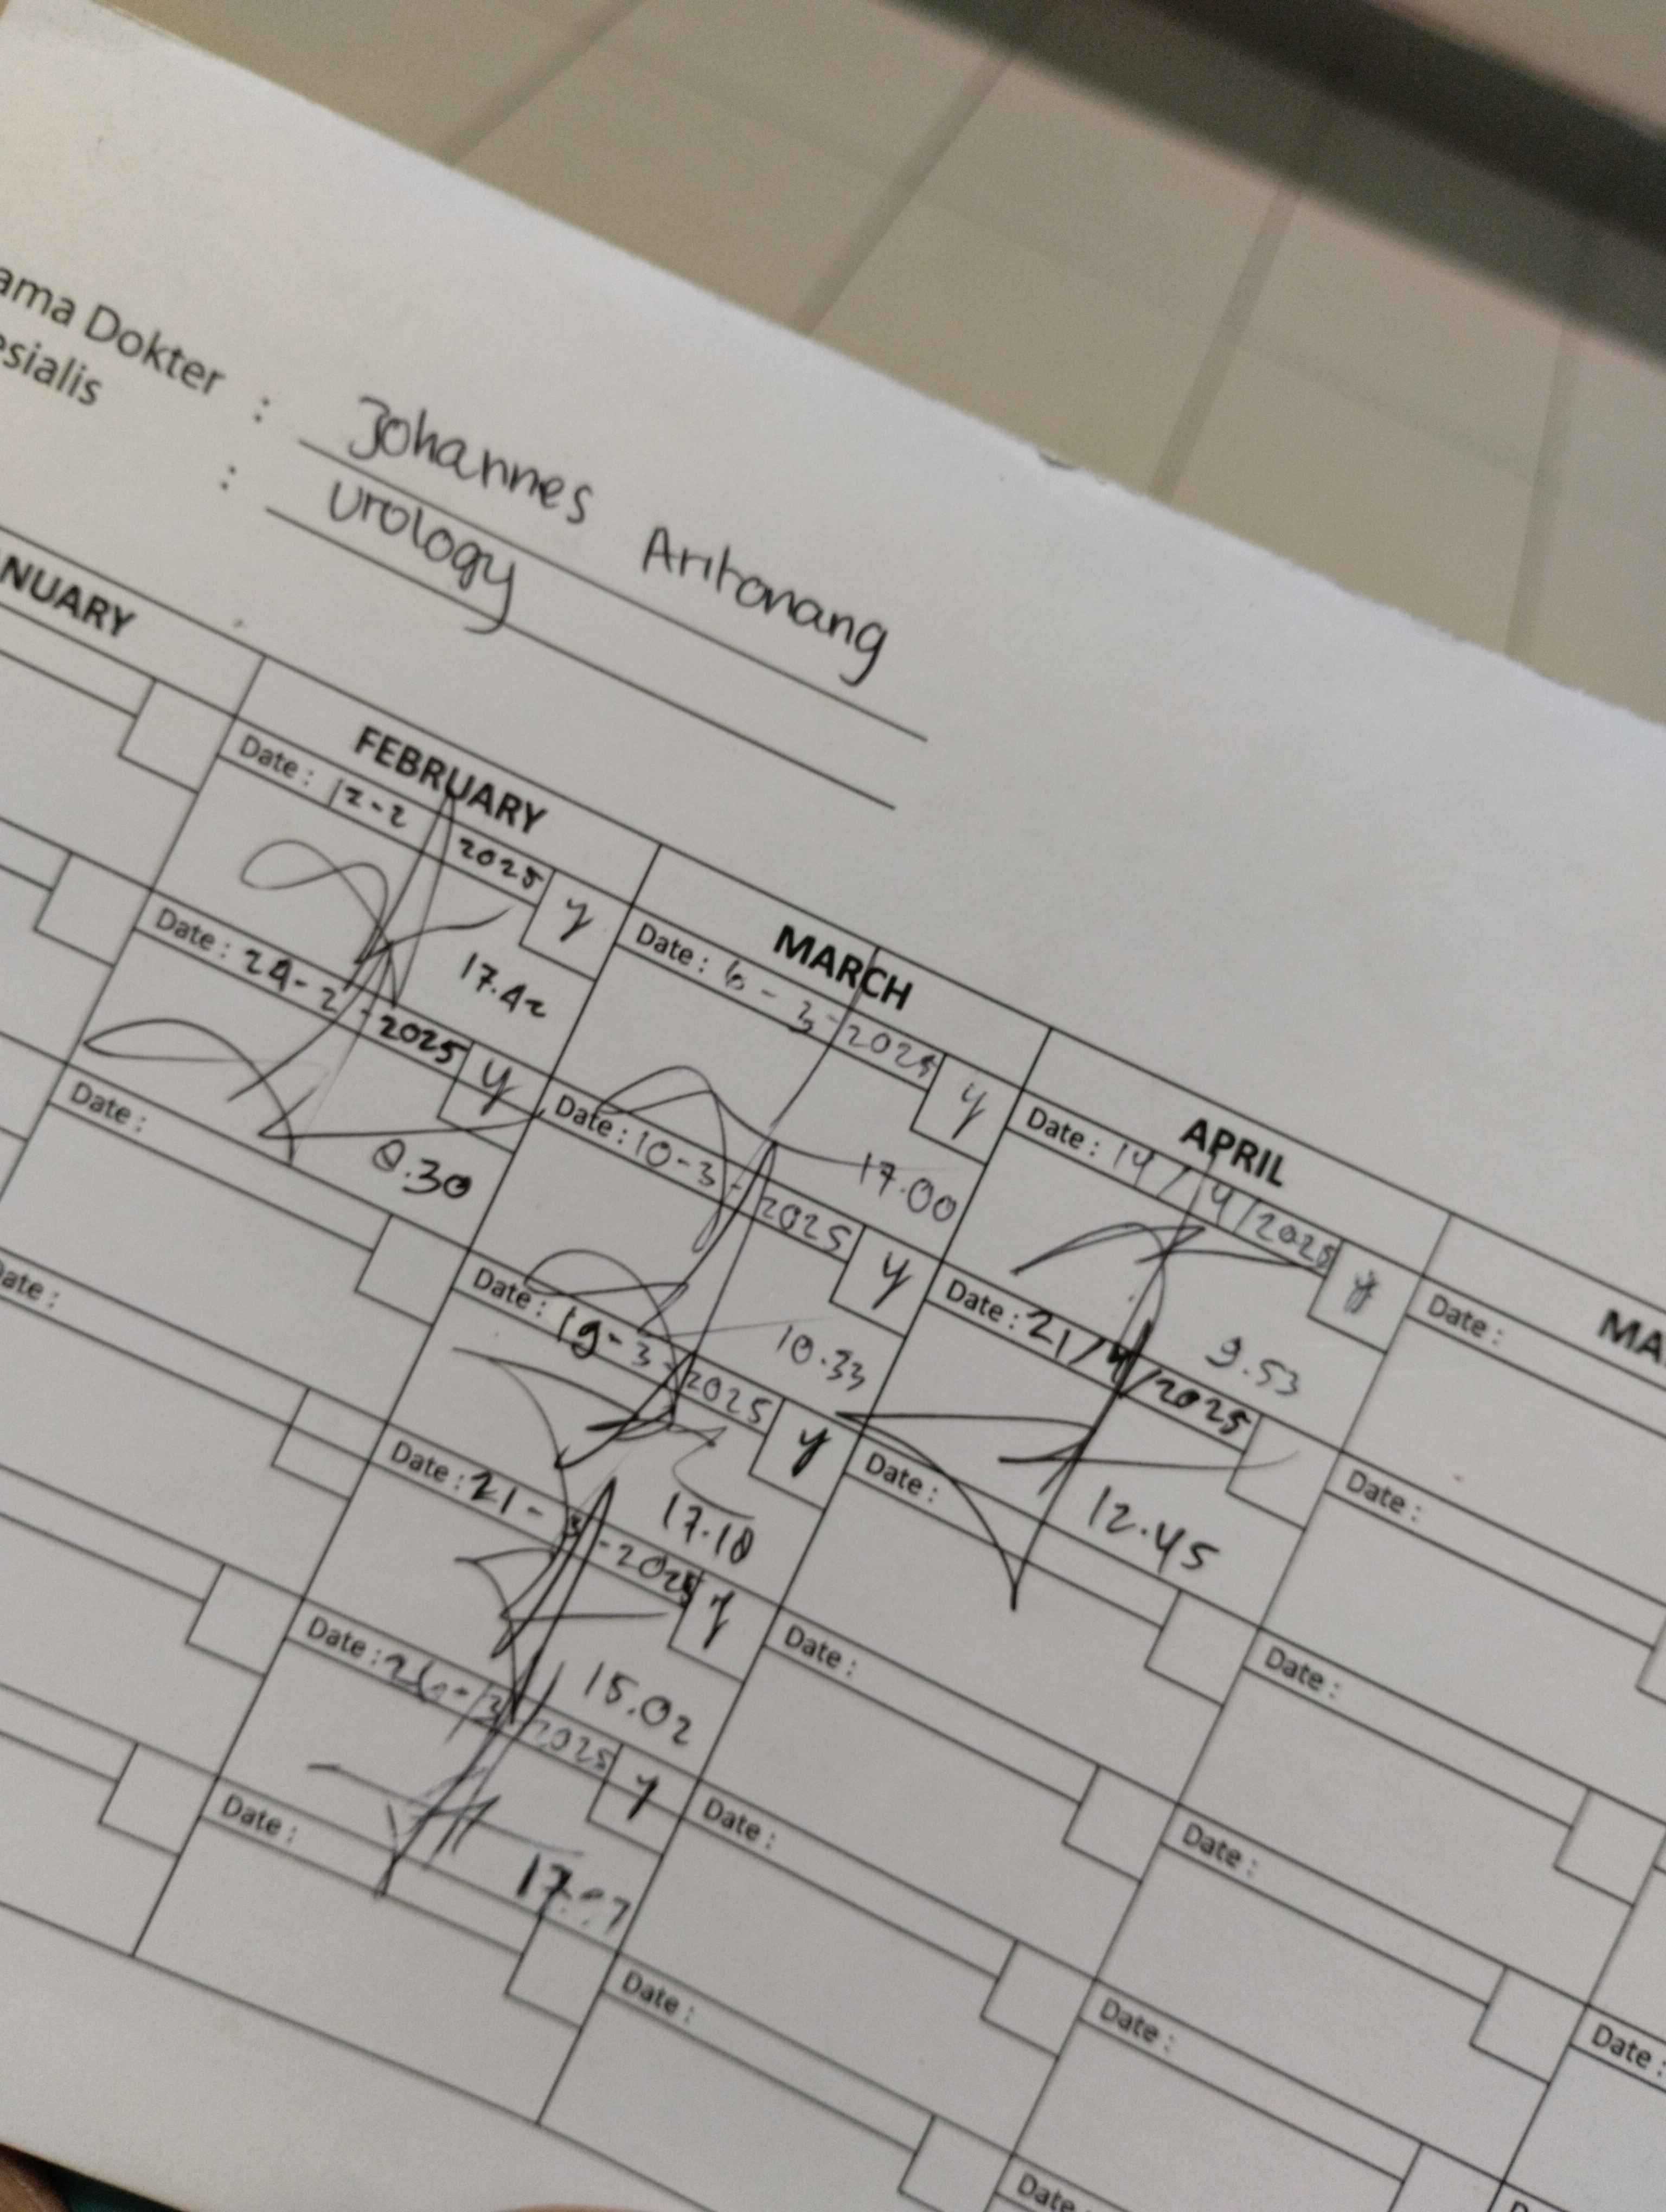 ama Dokter : Johannes Aritonang
esialis : Urology
NUARY FEBRUARY MARCH APRIL MA
Date : 12-2 2025 y
17.42
Date : 24-2-2025 y
8.30
Date :
Date : 6-3-2025 y
17.00
Date : 10-3-2025 y
10.33
Date : 19-3-2025 y
17.18
Date : 21-3-2025 y
15.02
Date : 2025 y
Date :
Date : 14/4/2025 y
9.53
Date : 21/4/2025
12.45
Date :
Date :
Date :
Date :
Date :
Date :
Date :
Date :
Date :
Date :
Date :